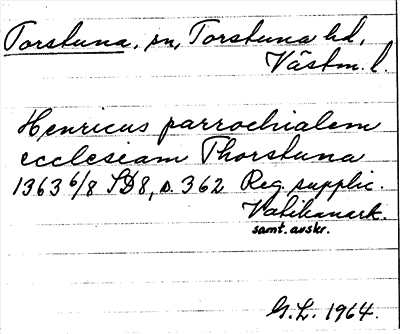 Torstuna, sn, Torstuna hd,
Västm. l.
Henricus parrochialem
ecclesiam Thorstuna
1363 6/8 SD8, s. 362 Reg. supplic.
Vatikanark.
samt. avskr.
G.L. 1964.